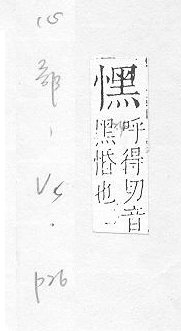 15 部 1 V5 . p26
呼得切音
黑惛也